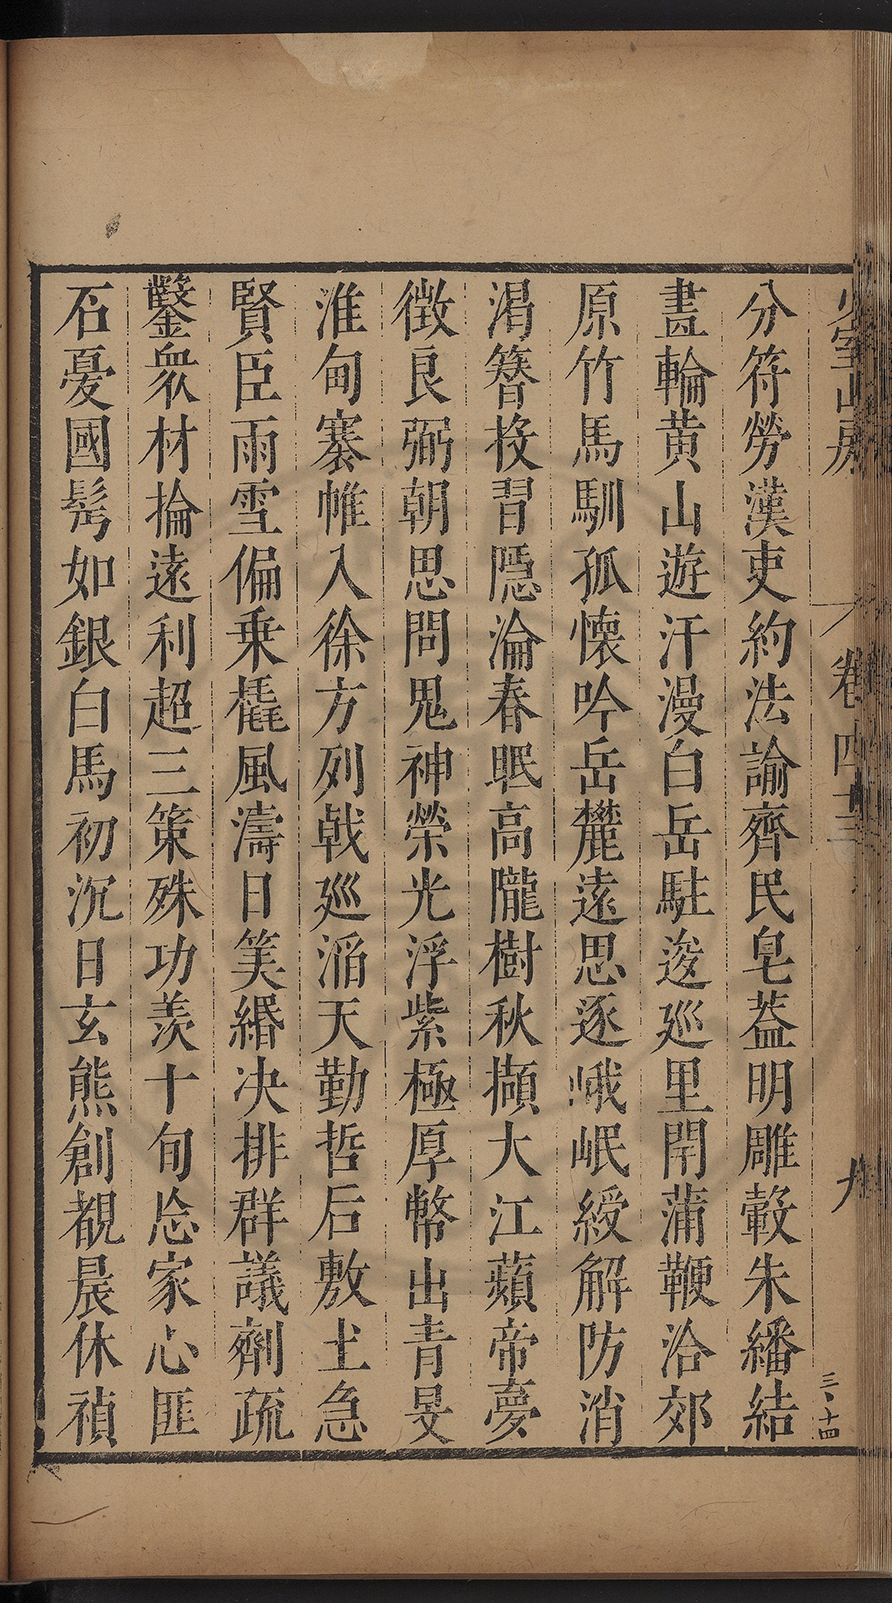 少室山房 卷四十三 九
三、十四
分符勞漢吏約法諭齊民皂葢明雕轂朱繙結
畫輪黄山遊汗漫白岳駐逡廵里閈蒲鞭洽郊
原竹馬馴孤懷吟岳麓遠思逐峨岷綬解防消
渴簪投習隱淪春眠高隴樹秋擷大江蘋帝夢
徴良弼朝思問鬼神榮光浮紫極厚幣出青旻
淮甸褰帷入徐方列戟廵滔天勤哲后敷土急
賢臣雨雪偏乗橇風濤日筭緡决排群議劑疏
鑿衆材掄遠利超三策殊功羨十旬忩家心匪
石憂國髩如銀白馬初沉日玄熊創覩晨休禎